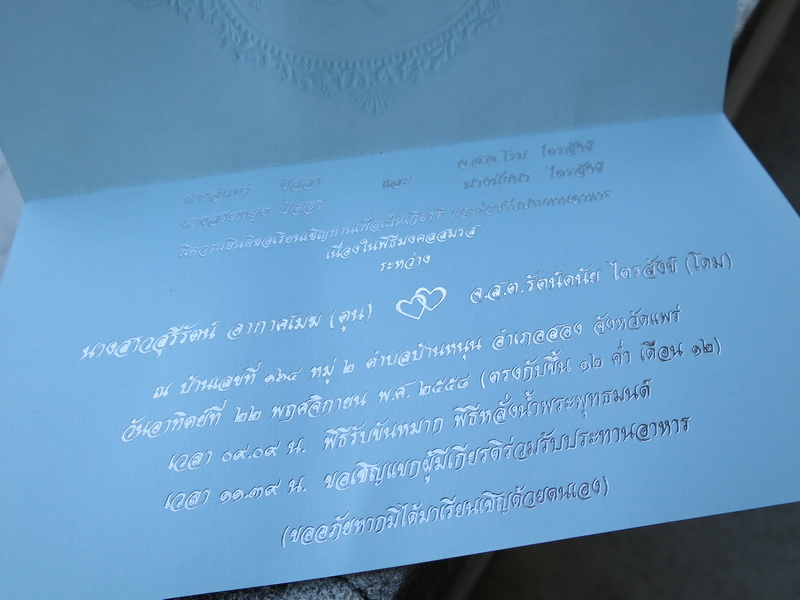 และ
มีความยินดีขอเรียนเชิญท่านเพื่อเป็นเกียรติ และร่วมรับประทานอาหาร
เนื่องในพิธีมงคลสมรส
ระหว่าง
นางสาวสุรีรัตน์ อากาศเมฆ (ตูน) จ.ส.ต.รัตน์ดนัย ไตรสังข์ (โดม)
ณ บ้านเลขที่ ๑๖๔ หมู่ ๒ ตำบลบ้านหนุน อำเภอสอง จังหวัดแพร่
วันอาทิตย์ที่ ๒๒ พฤศจิกายน พ.ศ. ๒๕๕๘ (ตรงกับขึ้น ๑๒ ค่ำ เดือน ๑๒)
เวลา ๐๙.๐๙ น. พิธีรับขันหมาก พิธีหลั่งน้ำพระพุทธมนต์
เวลา ๑๑.๓๙ น. ขอเชิญแขกผู้มีเกียรติร่วมรับประทานอาหาร
(ขออภัยหากมิได้มาเรียนเชิญด้วยตนเอง)